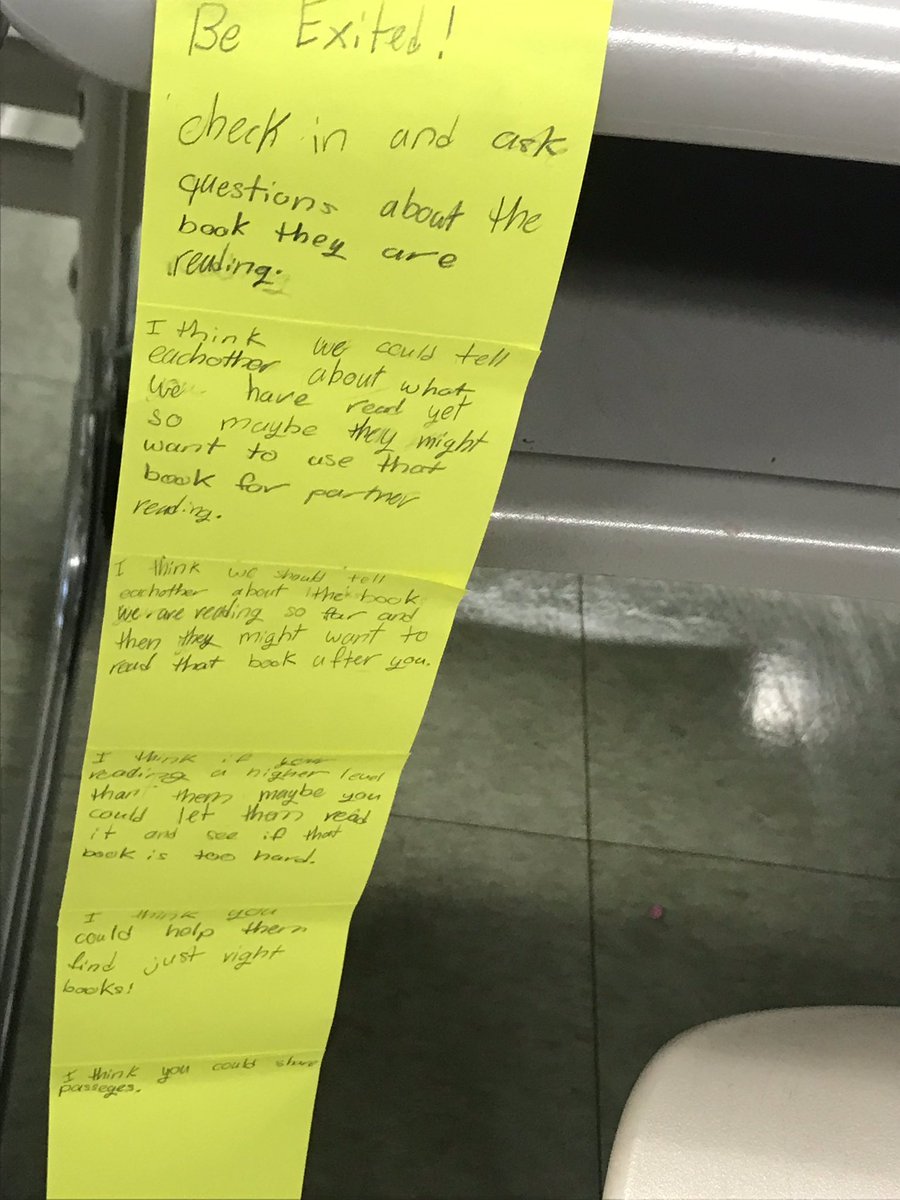 Be Exited!
check in and ask
questions about the
book they are
reading.
I think we could tell
eachother about what
we have read yet
so maybe they might
want to use that
book for partner
reading.
I think we should tell
eachother about the book
we are reading so far and
then they might want to
read that book after you.
I think if you
reading a higher level
than them maybe you
could let them read
it and see if that
book is too hard.
I think you
could help them
find just right
books!
I think you could share
passeges.